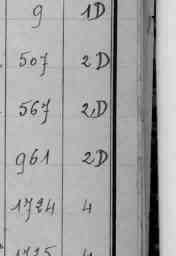 9 1D
507 2D
567 2D
961 2D
1724 4
1725 4